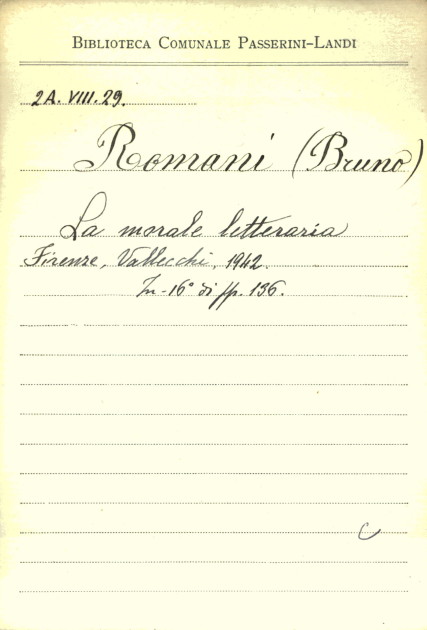 BIBLIOTECA COMUNALE PASSERINI-LANDI
2A. VIII. 29.
Romani (Bruno)
La morale letteraria
Firenze, Vallecchi, 1942.
In-16° di pp. 136.
C